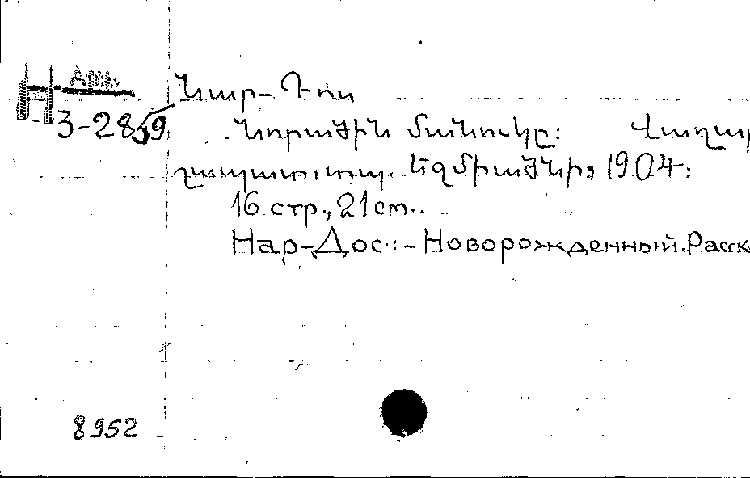 Н Арм.
3-2859
Նար-Դոս
Նորածին մանուկը: Վաղար
շապատ, տպ. Եջմիածնի, 1904:
16 стр., 21 cm.
Нар-Дос.:- Новорожденный. Расск
8952